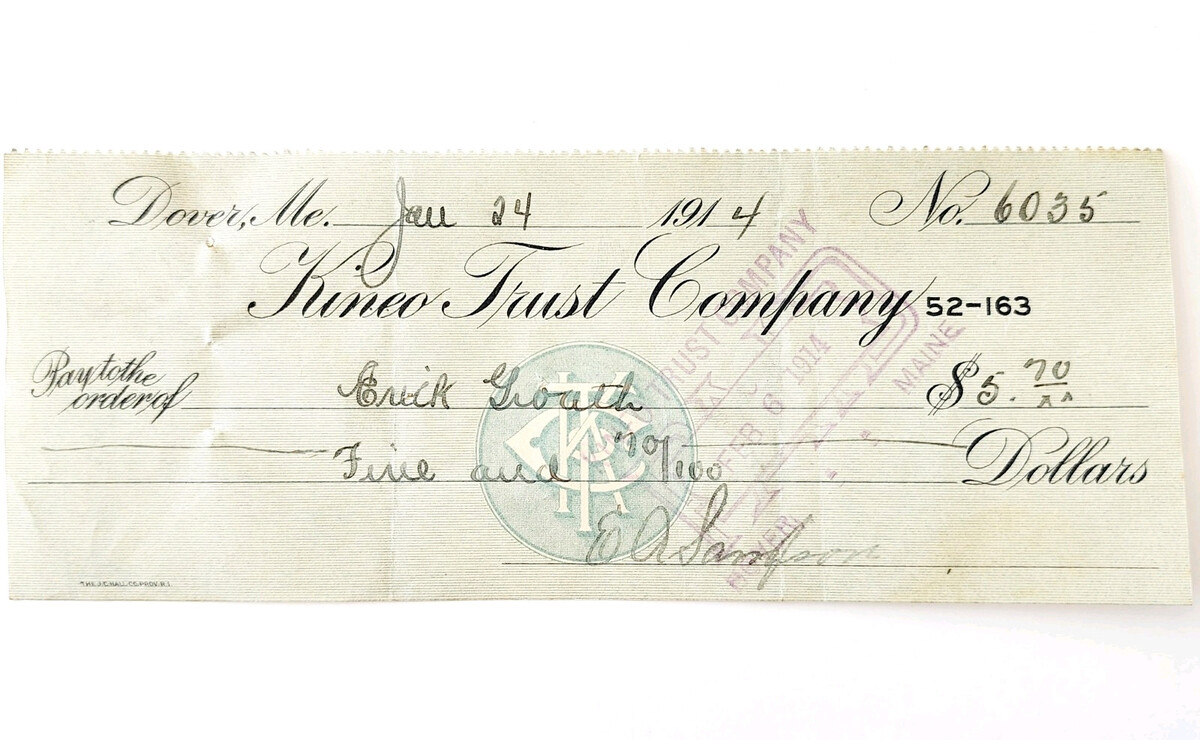 Dover, Me. Jan 24 1914 No. 6035
Kineo Trust Company 52-163
Pay to the order of Erick Groath $5.70/xx
Five and 70/100 Dollars
E A Sampson
TRUST COMPANY
PAID
FEB 6 1914
DOVER, MAINE
THE A.C. HALL CO. PROV. R.I.
KTC